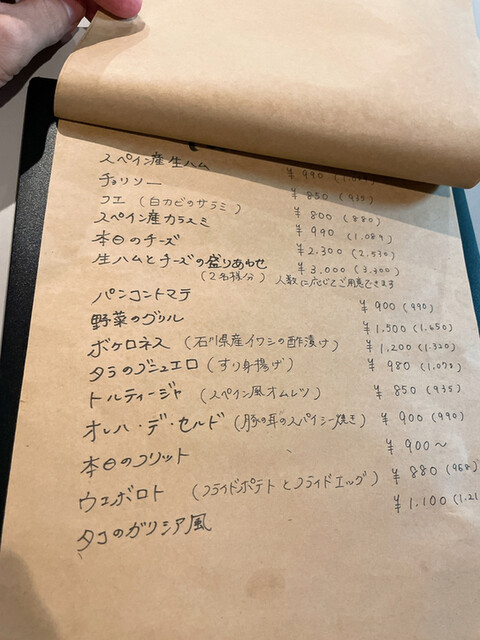 スペイン産 生ハム ¥990
チョリソー ¥850 (935)
フエ (白カビのサラミ) ¥800 (880)
スペイン産カラスミ ¥990 (1.089)
本日のチーズ ¥2,300 (2.530)
生ハムとチーズの盛りあわせ ¥3,000 (3.300)
(2名様分) 人数に応じてご用意できます
パンコントマテ ¥900 (990)
野菜のグリル ¥1.500 (1.650)
ボケロネス (石川県産イワシの酢漬け) ¥1,200 (1.320)
タラのブニュエロ (すり身揚げ) ¥980 (1,078)
トルティージャ (スペイン風オムレツ) ¥850 (935)
オレハ・デ・セルド (豚の耳のスパイシー焼き) ¥900 (990)
本日のフリット ¥900〜
ウエボロト (フライドポテトとフライドエッグ) ¥880 (968)
タコのガリシア風 ¥1.100 (1.21